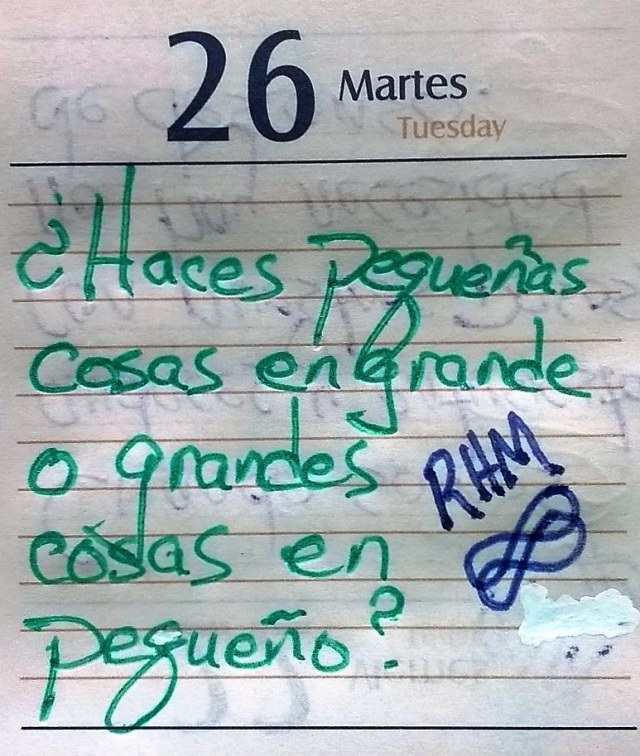 26 Martes
Tuesday
¿Haces pequeñas
cosas en grande
o grandes
cosas en
pequeño?
RHM